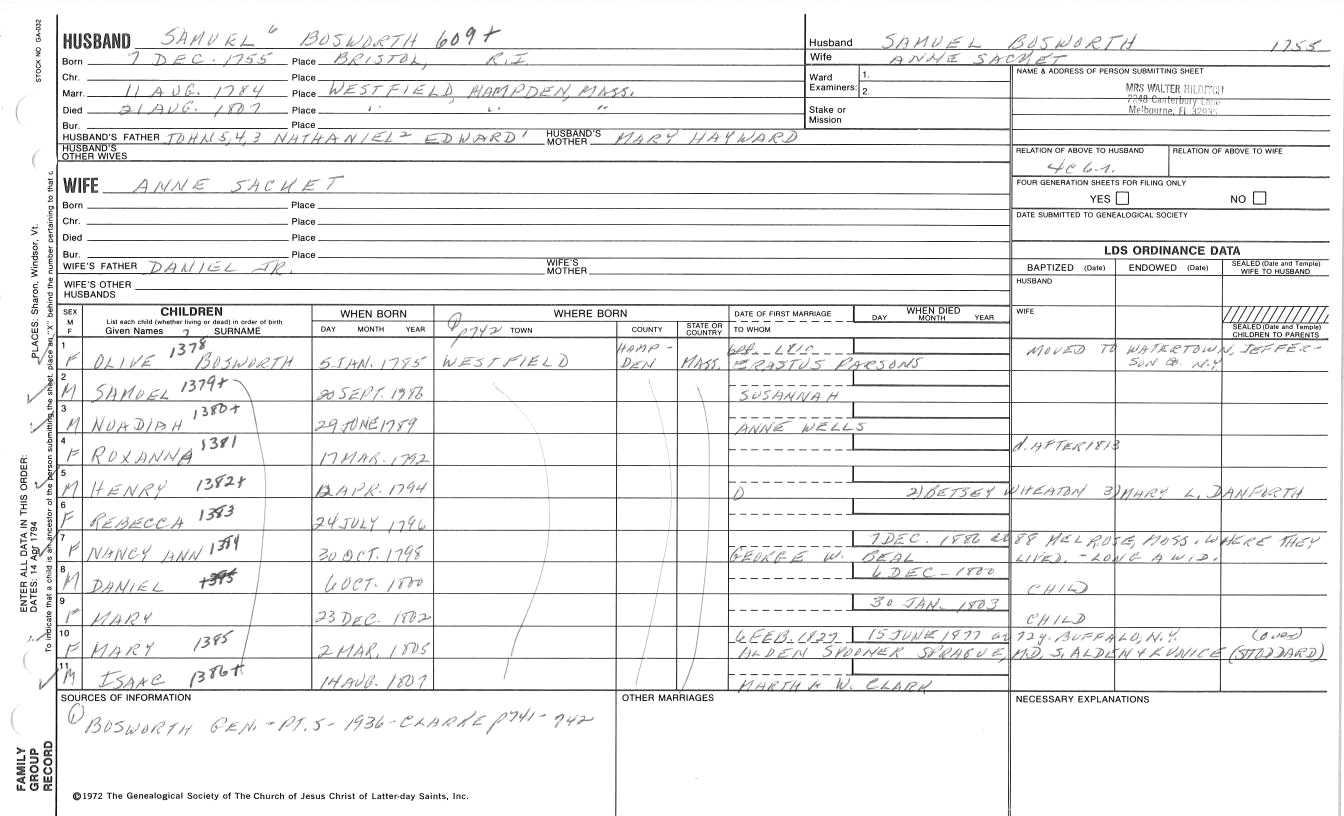 STOCK NO GA-032
HUSBAND SAMUEL 6 BOSWORTH 609+
Born 7 DEC. 1755 Place BRISTOL, R.I.
Chr. Place
Marr. 11 AUG. 1784 Place WESTFIELD, HAMPDEN, MASS.
Died 21 AUG. 1807 Place " " "
Bur. Place
HUSBAND'S FATHER JOHN 5,4,3 NATHANIEL 2 EDWARD 1 HUSBAND'S MOTHER MARY HAYWARD
HUSBAND'S OTHER WIVES
Husband SAMUEL BOSWORTH 1755
Wife ANNE SACKET
Ward Examiners: 1. 2.
Stake or Mission
NAME & ADDRESS OF PERSON SUBMITTING SHEET
MRS WALTER
Canterbury Lane
Melbourne, FL 32935
RELATION OF ABOVE TO HUSBAND RELATION OF ABOVE TO WIFE
4C 6-1.
FOUR GENERATION SHEETS FOR FILING ONLY
YES NO
DATE SUBMITTED TO GENEALOGICAL SOCIETY
WIFE ANNE SACKET
Born Place
Chr. Place
Died Place
Bur. Place
WIFE'S FATHER DANIEL JR. WIFE'S MOTHER
WIFE'S OTHER HUSBANDS
LDS ORDINANCE DATA
BAPTIZED (Date) ENDOWED (Date) SEALED (Date and Temple) WIFE TO HUSBAND
HUSBAND
WIFE
SEALED (Date and Temple) CHILDREN TO PARENTS
SEX M F CHILDREN List each child (whether living or dead) in order of birth Given Names 7 SURNAME
WHEN BORN DAY MONTH YEAR
WHERE BORN 1 p742 TOWN COUNTY STATE OR COUNTRY
DATE OF FIRST MARRIAGE TO WHOM
WHEN DIED DAY MONTH YEAR
1 F OLIVE 1378 BOSWORTH 5 JAN. 1785 WESTFIELD HAMP-DEN MASS. 1810 ERASTUS PARSONS MOVED TO WATERTOWN, JEFFER-SON CO. N.Y.
2 M SAMUEL 1379+ 20 SEPT. 1786 SUSANNAH
3 M NOADIAH 1380+ 29 JUNE 1789 ANNE WELLS
4 F ROXANNA 1381 17 MAR. 1792 d. AFTER 1813
5 M HENRY 1382+ 12 APR. 1794 2) BETSEY WHEATON 3) MARY L. DANFORTH
6 F REBECCA 1383 24 JULY 1796
7 F NANCY ANN 1384 30 OCT. 1798 GEORGE W. BEAL 7 DEC. 1886 ae 88 MELROSE, MASS. WHERE THEY LIVED. - LONG A WID.
8 M DANIEL 1385 6 OCT. 1800 6 DEC - 1800 CHILD
9 F MARY 23 DEC. 1802 30 JAN. 1803 CHILD
10 F MARY 1385 2 MAR. 1805 6 FEB. 1827 15 JUNE 1877 ae 72y. BUFFALO, N.Y. (over)
ALDEN SPOONER SPRAGUE, M.D. S. ALDEN & EUNICE (STODDARD)
11 M ISAAC 1386+ 14 AUG. 1807 MARTHA W. CLARK
SOURCES OF INFORMATION
1 BOSWORTH GEN. - PT. 5 - 1936 - CLARKE p741-742
OTHER MARRIAGES
NECESSARY EXPLANATIONS
©1972 The Genealogical Society of The Church of Jesus Christ of Latter-day Saints, Inc.
FAMILY GROUP RECORD
ENTER ALL DATA IN THIS ORDER:
DATES: 14 Apr 1794
PLACES: Sharon, Windsor, Vt.
To indicate that a child is an ancestor of the person submitting the sheet, place an "X" behind the number pertaining to that c